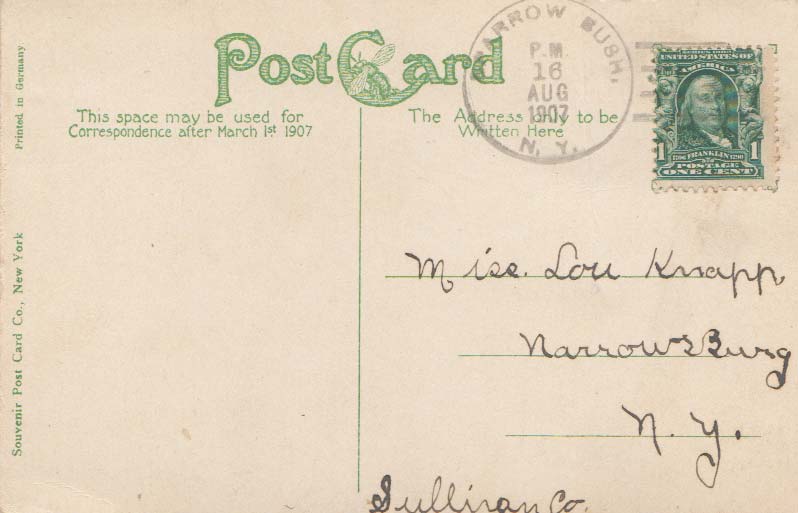 Post Card
This space may be used for
Correspondence after March 1st 1907
The Address only to be
Written Here
P.M.
16
AUG
1907
N. Y.
SERIES 1902
UNITED STATES OF
AMERICA
1 FRANKLIN 1
POSTAGE
ONE CENT
Miss. Lou Knapp
NarrowsBurg
N. Y.
Sullivan Co.
Printed in Germany.
Souvenir Post Card Co., New York